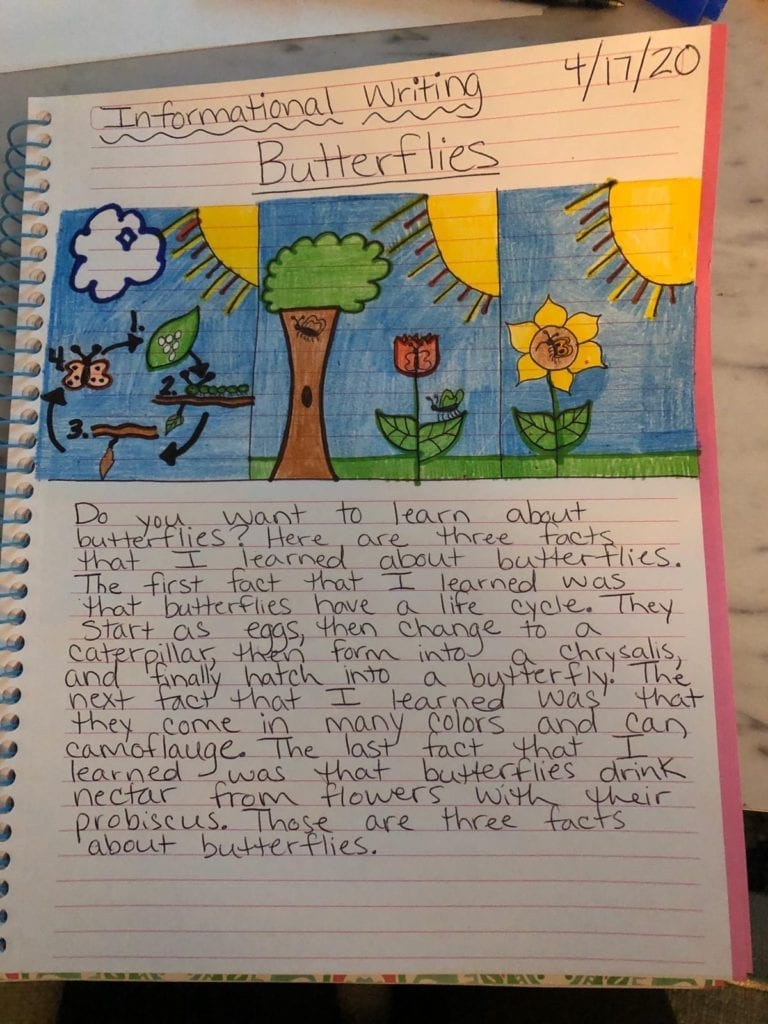 4/17/20
Informational Writing
Butterflies
1.
2.
3.
4.
Do you want to learn about
butterflies? Here are three facts
that I learned about butterflies.
The first fact that I learned was
that butterflies have a life cycle. They
start as eggs, then change to a
caterpillar, then form into a chrysalis,
and finally hatch into a butterfly. The
next fact that I learned was that
they come in many colors and can
camoflauge. The last fact that I
learned was that butterflies drink
nectar from flowers with their
probiscus. Those are three facts
about butterflies.